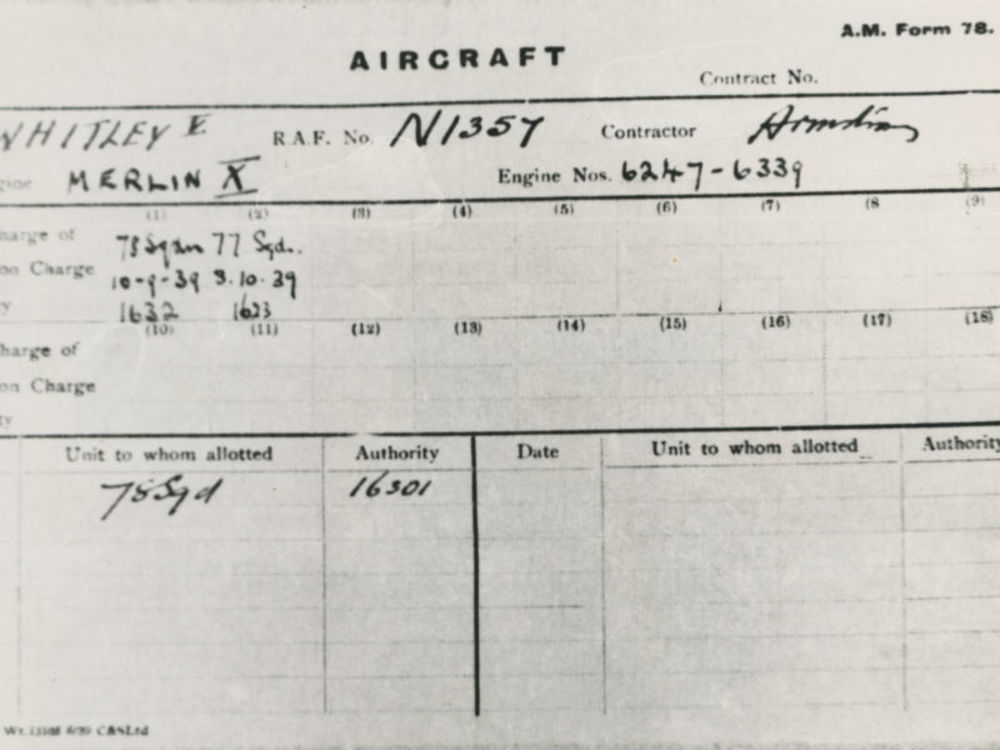 A.M. Form 78.
AIRCRAFT
Contract No.
WHITLEY R.A.F. No. N1357 Contractor
gine MERLIN X Engine Nos. 6247-6339
(1) (2) (3) (4) (5) (6) (7) (8 (9)
harge of 78 Sqdn 77 Sqd.
on Charge 10-9-39 3.10.39
y 1632 1623
(10) (11) (12) (13) (14) (15) (16) (17) (18)
harge of
on Charge
ty
Unit to whom allotted Authority Date Unit to whom allotted Authority
78 Sqd 16301
Wt. C&SLtd